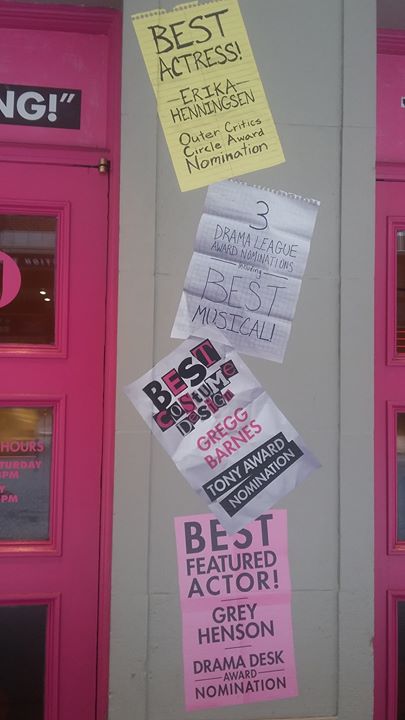 NG!”
BEST
ACTRESS!
ERIKA
HENNINGSEN
Outer Critics
Circle Award
Nomination
3
DRAMA LEAGUE
AWARD NOMINATIONS
Including
BEST
MUSICAL!
BEST
COSTUME
DESIGN
GREGG
BARNES
TONY AWARD
NOMINATION
BEST
FEATURED
ACTOR!
GREY
HENSON
DRAMA DESK
AWARD
NOMINATION
HOURS
TURDAY
PM
Y
PM